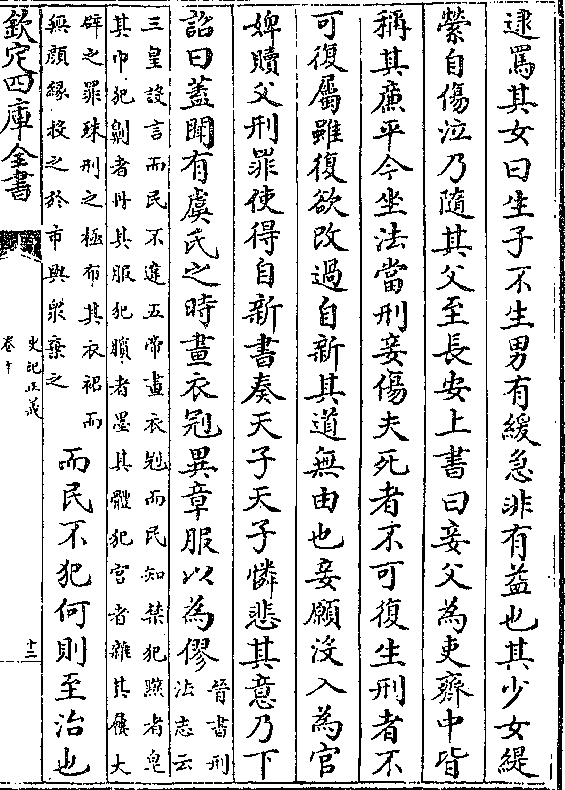 逮罵其女曰生子不生男有緩急非有益也其少女緹
縈自傷泣乃隨其父至長安上書曰妾父為吏齊中皆
稱其廉平今坐法當刑妾傷夫死者不可復生刑者不
可復屬雖復欲改過自新其道無由也妾願沒入為官
婢贖父刑罪使得自新書奏天子天子憐悲其意乃下
詔曰蓋聞有虞氏之時畫衣冠異章服以為僇
晉書刑
法志云
三皇設言而民不違五帝畫衣冠而民知禁犯黥者皂
其巾犯劓者丹其服犯臏者墨其體犯宮者雜其屨大
辟之罪殊刑之極布其衣裾而
無領緣投之於市與衆棄之
而民不犯何則至治也
欽定四庫全書
史記正義
卷十
十三